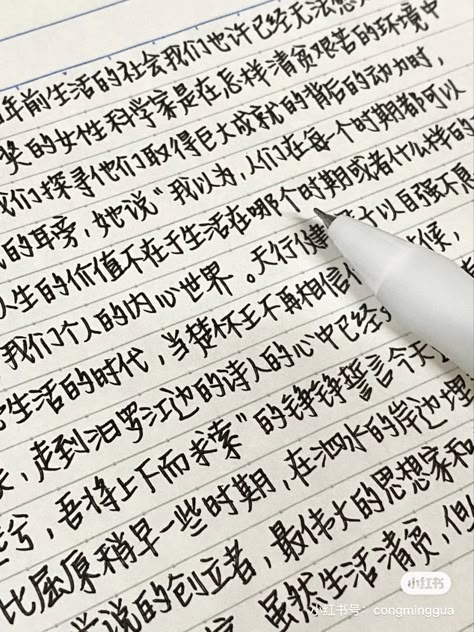 年前生活的社会我们也许已经无法想
奖的女性科学家是在怎样清贫艰苦的环境中
我们探寻他们取得巨大成就的背后的动力时，
的耳旁，她说“我以为，人们在每一个时期都可以
人生的价值不在于生活在哪个时期或者什么样的
我们个人的内心世界。天行健 以自强不息
生活的时代，当楚怀王不再相信 时候，
走到汨罗江边的诗人的心中已经
兮，吾将上下而求索”的铮铮誓言今天
比屈原稍早一些时期，在泗水的岸边埋
学说的创立者，最伟大的思想家和
虽然生活清贫，但
小红书
小红书号：congminggua